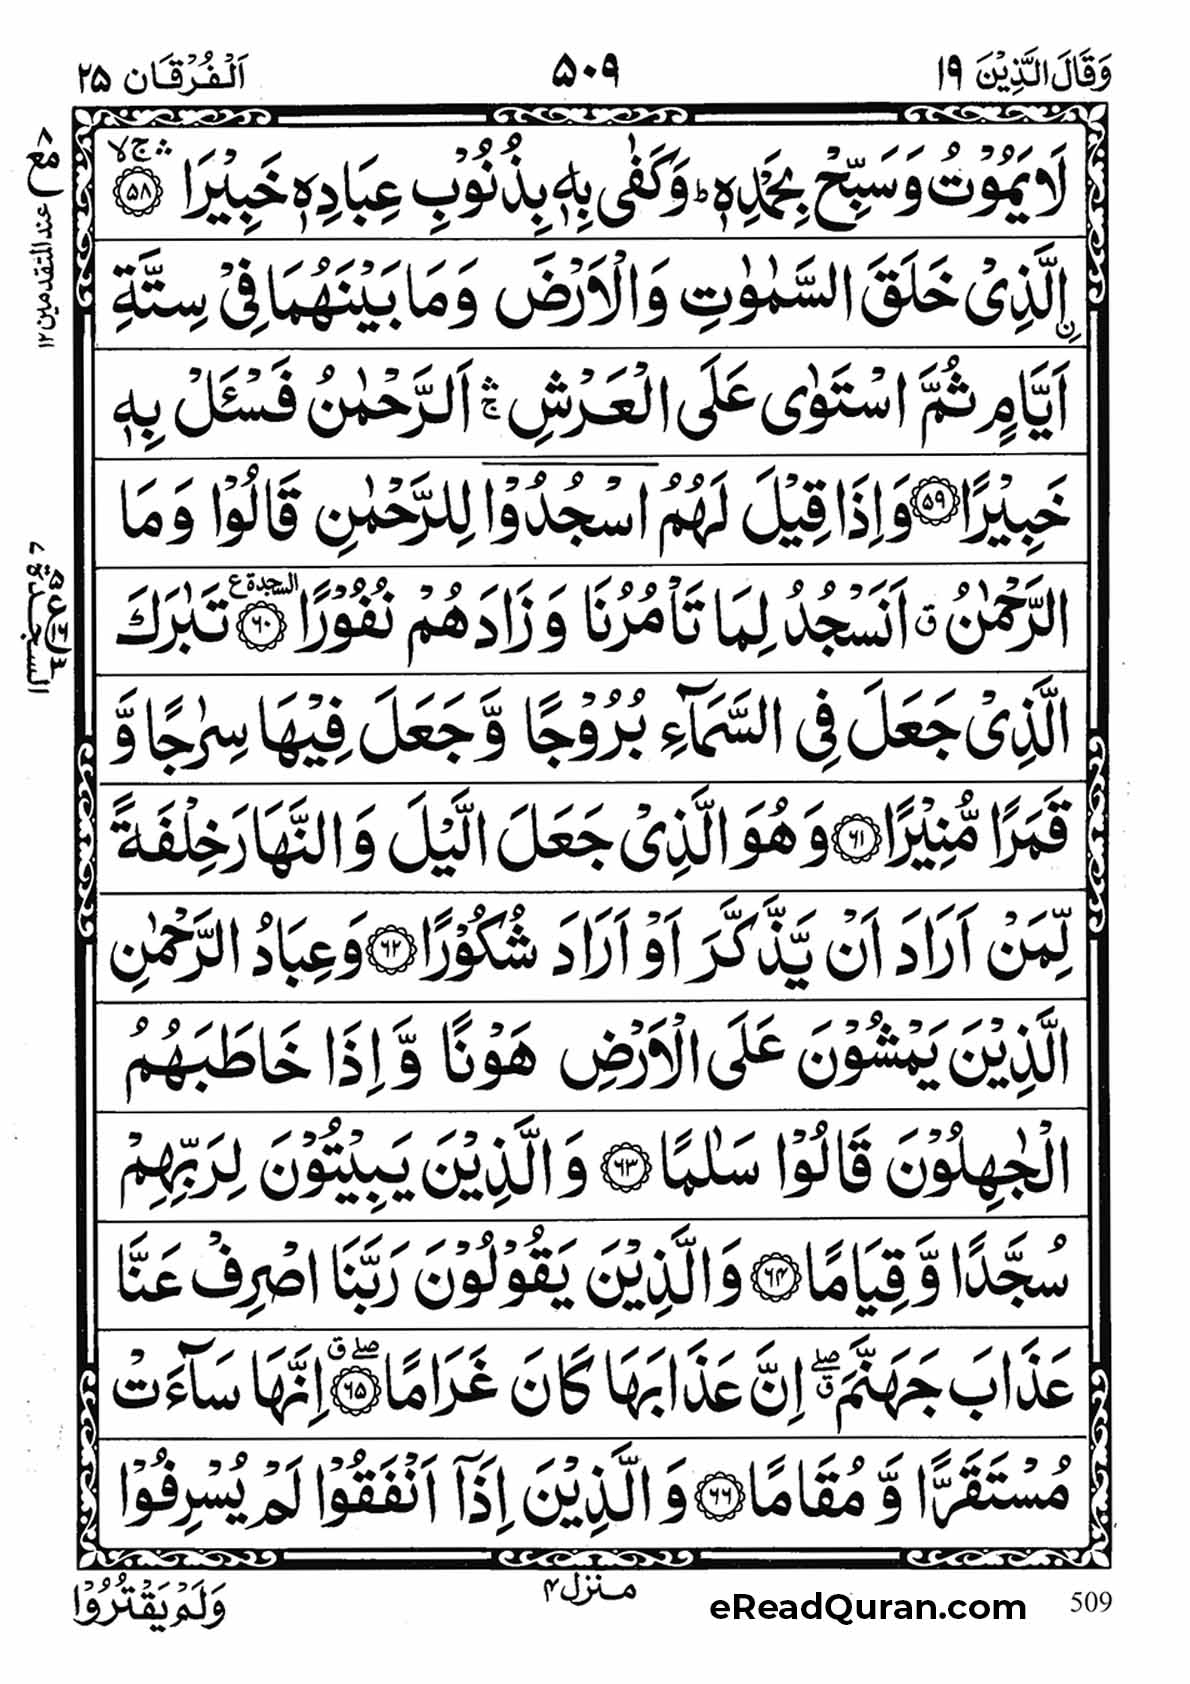 وَقَالَ الَّذِيْنَ ١٩
٥٠٩
اَلْفُرْقَان ٢٥
لَا يَمُوْتُ وَسَبِّحْ بِحَمْدِهٖ ؕ وَكَفٰى بِهٖ بِذُنُوْبِ عِبَادِهٖ خَبِيْرَا ۚۛ ۙ ﴿٥٨﴾
اۨلَّذِىْ خَلَقَ السَّمٰوٰتِ وَالْاَرْضَ وَمَا بَيْنَهُمَا فِىْ سِتَّةِ
اَيَّامٍ ثُمَّ اسْتَوٰى عَلَى الْعَرْشِ ۚۛ اَلرَّحْمٰنُ فَسْـَٔلْ بِهٖ
خَبِيْرًا ﴿٥٩﴾ وَاِذَا قِيْلَ لَهُمُ اسْجُدُوْا لِلرَّحْمٰنِ قَالُوْا وَمَا
الرَّحْمٰنُ ق اَنَسْجُدُ لِمَا تَاْمُرُنَا وَزَادَهُمْ نُفُوْرًا ﴿٦٠﴾ السجدة ع تَبٰرَكَ
الَّذِىْ جَعَلَ فِى السَّمَآءِ بُرُوْجًا وَّجَعَلَ فِيْهَا سِرٰجًا وَّ
قَمَرًا مُّنِيْرًا ﴿٦١﴾ وَهُوَ الَّذِىْ جَعَلَ الَّيْلَ وَالنَّهَارَ خِلْفَةً
لِّمَنْ اَرَادَ اَنْ يَّذَّكَّرَ اَوْ اَرَادَ شُكُوْرًا ﴿٦٢﴾ وَعِبَادُ الرَّحْمٰنِ
الَّذِيْنَ يَمْشُوْنَ عَلَى الْاَرْضِ هَوْنًا وَّاِذَا خَاطَبَهُمُ
الْجٰهِلُوْنَ قَالُوْا سَلٰمًا ﴿٦٣﴾ وَالَّذِيْنَ يَبِيْتُوْنَ لِرَبِّهِمْ
سُجَّدًا وَّقِيَامًا ﴿٦٤﴾ وَالَّذِيْنَ يَقُوْلُوْنَ رَبَّنَا اصْرِفْ عَنَّا
عَذَابَ جَهَنَّمَ ۖ ق اِنَّ عَذَابَهَا كَانَ غَرَامًا ۖ ق ﴿٦٥﴾ اِنَّهَا سَآءَتْ
مُسْتَقَرًّا وَّمُقَامًا ﴿٦٦﴾ وَالَّذِيْنَ اِذَآ اَنْفَقُوْا لَمْ يُسْرِفُوْا
مع ٨
عند المتقدمين ١٢
السجدة ٧
منزل ٤
وَلَمْ يَقْتُرُوْا
eReadQuran.com
509